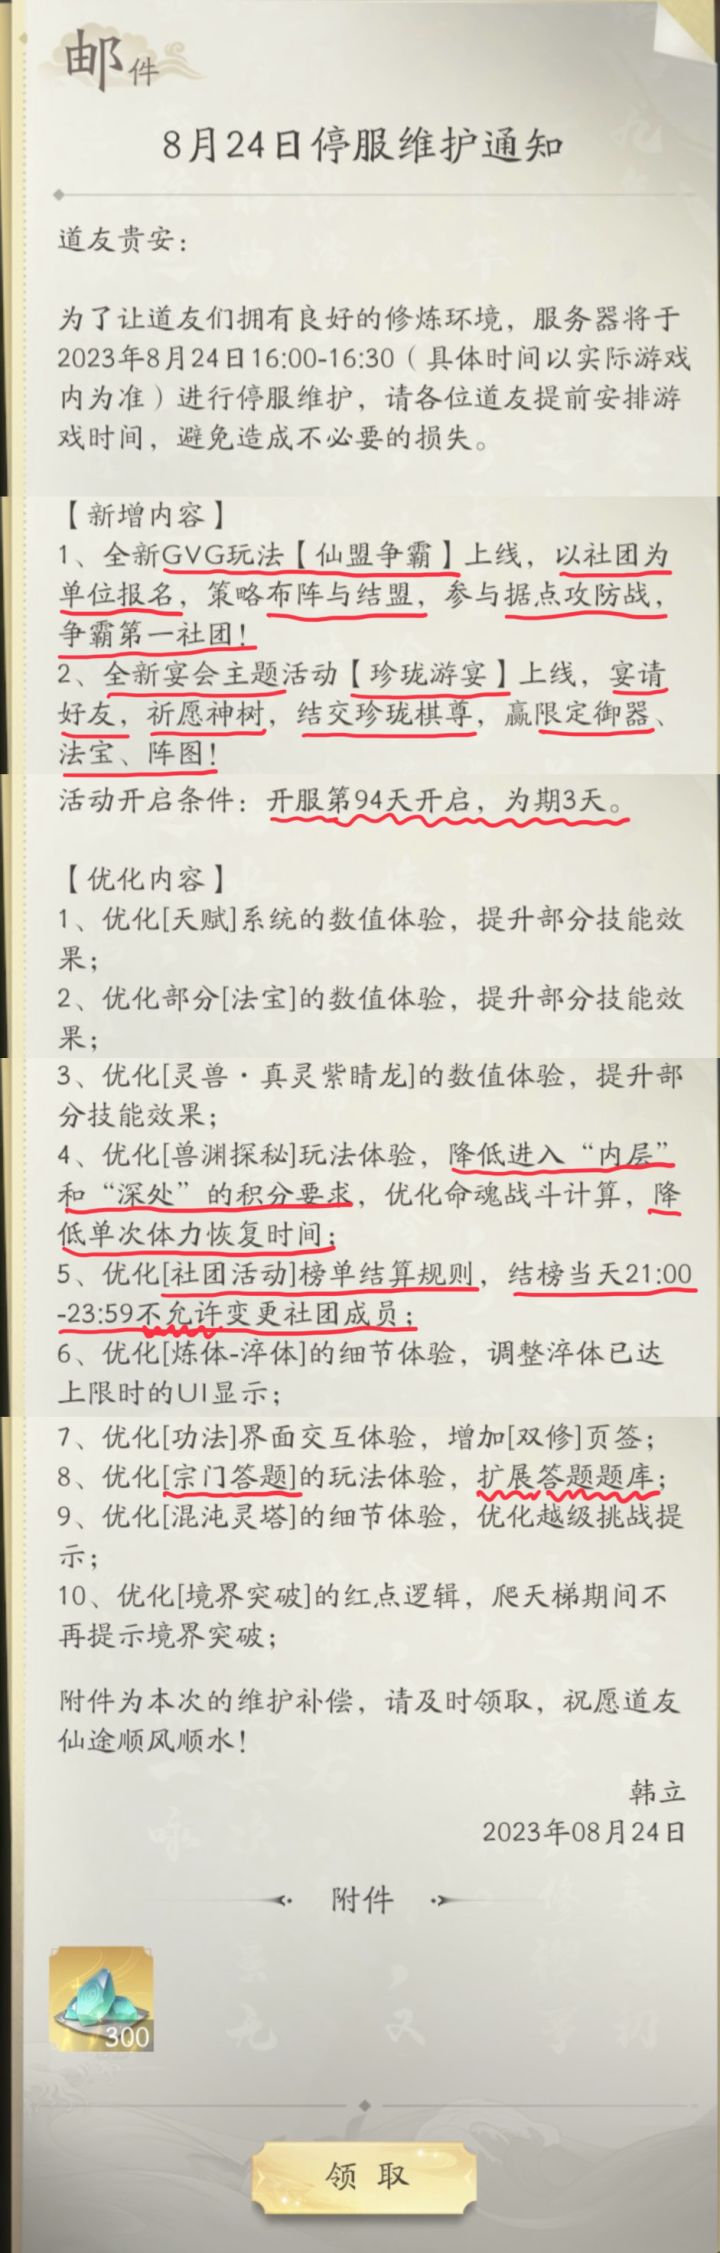 邮件
8月24日停服维护通知
道友贵安：
为了让道友们拥有良好的修炼环境，服务器将于
2023年8月24日16:00-16:30（具体时间以实际游戏
内为准）进行停服维护，请各位道友提前安排游
戏时间，避免造成不必要的损失。
【新增内容】
1、全新GVG玩法【仙盟争霸】上线，以社团为
单位报名，策略布阵与结盟，参与据点攻防战，
争霸第一社团！
2、全新宴会主题活动【珍珑游宴】上线，宴请
好友，祈愿神树，结交珍珑棋尊，赢限定御器、
法宝、阵图！
活动开启条件：开服第94天开启，为期3天。
【优化内容】
1、优化[天赋]系统的数值体验，提升部分技能效
果；
2、优化部分[法宝]的数值体验，提升部分技能效
果；
3、优化[灵兽·真灵紫睛龙]的数值体验，提升部
分技能效果；
4、优化[兽渊探秘]玩法体验，降低进入“内层”
和“深处”的积分要求，优化命魂战斗计算，降
低单次体力恢复时间；
5、优化[社团活动]榜单结算规则，结榜当天21:00
-23:59不允许变更社团成员；
6、优化[炼体-淬体]的细节体验，调整淬体已达
上限时的UI显示；
7、优化[功法]界面交互体验，增加[双修]页签；
8、优化[宗门答题]的玩法体验，扩展答题题库；
9、优化[混沌灵塔]的细节体验，优化越级挑战提
示；
10、优化[境界突破]的红点逻辑，爬天梯期间不
再提示境界突破；
附件为本次的维护补偿，请及时领取，祝愿道友
仙途顺风顺水！
韩立
2023年08月24日
附件
300
领取